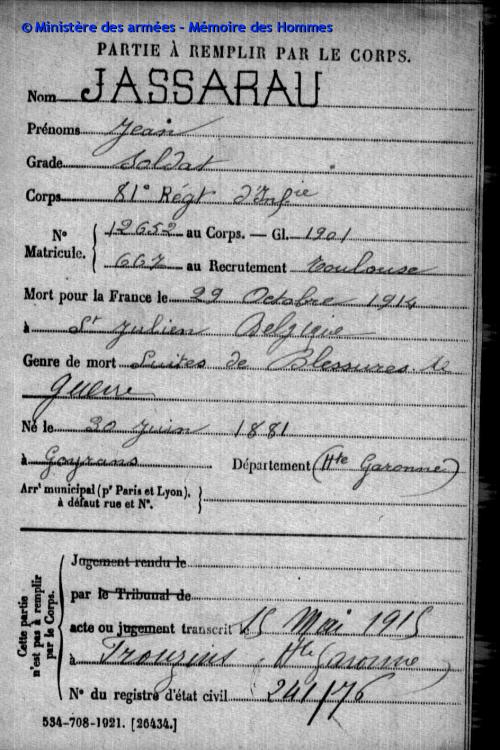 © Ministère des armées - Mémoire des Hommes
PARTIE À REMPLIR PAR LE CORPS.
Nom JASSARAU
Prénoms Jean
Grade Soldat
Corps 81e Régt d'Infie
No Matricule. 12652 au Corps. — Cl. 1901
667 au Recrutement Toulouse
Mort pour la France le 29 Octobre 1914
à St Julien Belgique
Genre de mort Suites de Blessures de
guerre
Né le 30 juin 1881
à Goyrans Département (Hte Garonne)
Arrt municipal (pr Paris et Lyon), à défaut rue et No.
Cette partie n'est pas à remplir par le Corps.
Jugement rendu le
par le Tribunal de
acte ou jugement transcrit le 15 Mai 1915
à Frouzins Hte Garonne
No du registre d'état civil 241/76
534-708-1921. [26434.]